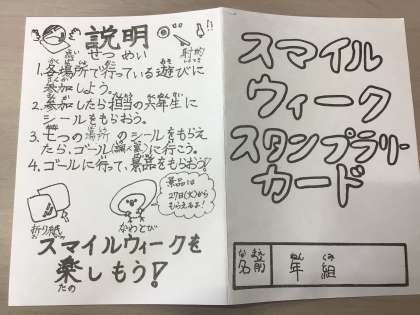 説明
せつめい
射的
1. 各場所で行っている遊びに
参加しよう。
2. 参加したら担当の六年生に
シールをもらおう。
3. 七つの場所のシールをもらえ
たら、ゴール
に行こう。
4. ゴールに行って、景品をもらおう!
景品は
27日(火)から
もらえるよ!
折り紙
なわとび
スマイルウィークを
楽しもう!
たの
スマイル
ウィーク
スタンプラリー
カード
なまえ
名前
ねん
年
くみ
組